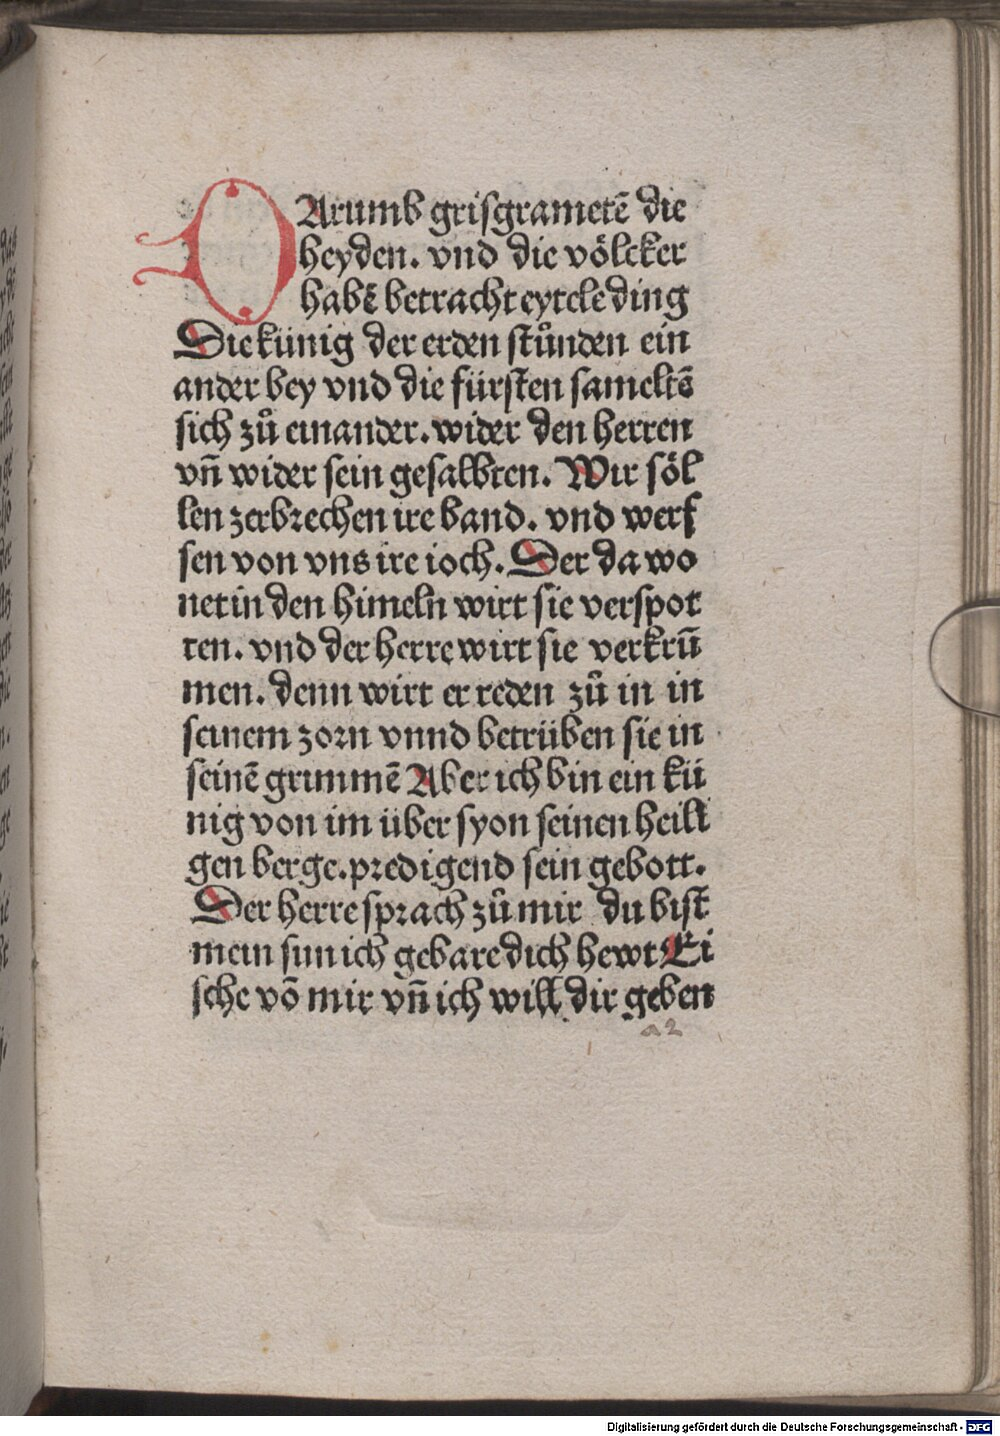 DArumb grisgrametē die
heyden. vnd die völcker
habē betracht eytele ding
Die künig der erden stůnden ein
ander bey vnd die fürsten sameltē
sich zů einander. wider den herren
vn̄ wider sein gesalbten. Wir söl
len zerbrechen ire band. vnd werf
fen von vns ire ioch. Der da wo
net in den himeln wirt sie verspot
ten. vnd der herre wirt sie verkrū
men. denn wirt er reden zů in in
seinem zorn vnnd betrüben sie in
seinē grimmē Aber ich bin ein kü
nig von im über syon seinen heili
gen berge. predigend sein gebott.
Der herre sprach zů mir du bist
mein sun ich gebare dich hewt Ei
sche vō mir vn̄ ich will dir geben
a2
Digitalisierung gefördert durch die Deutsche Forschungsgemeinschaft - DFG